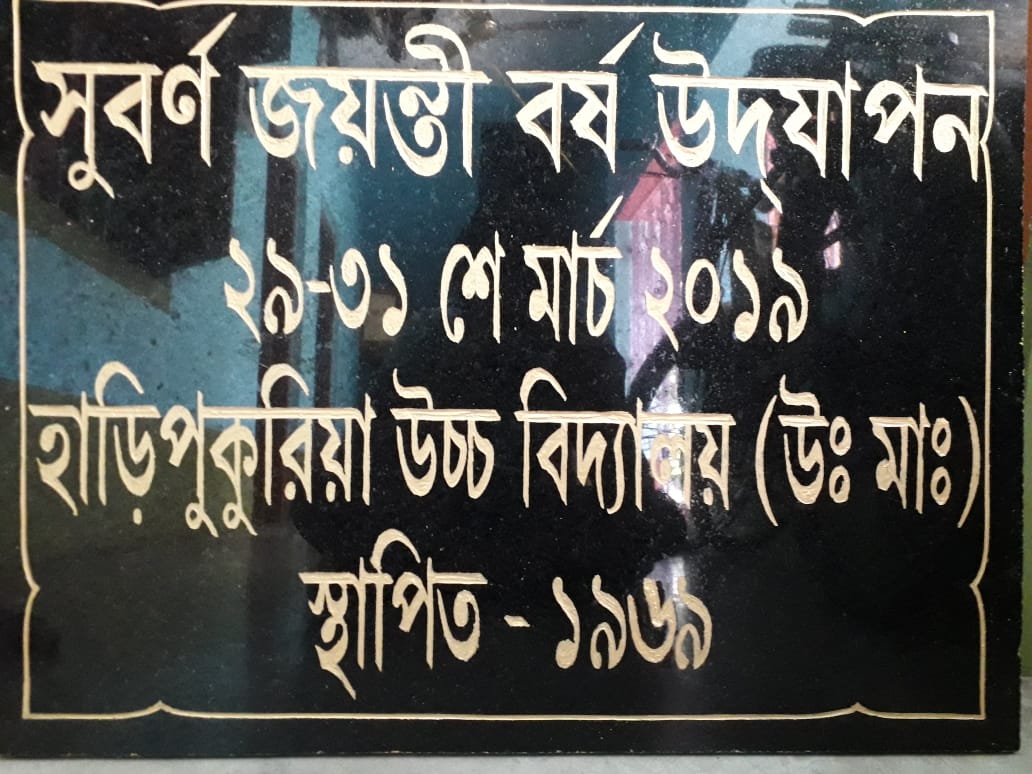 সুবর্ণ জয়ন্তী বর্ষ উদ্‌যাপন
২৯-৩১ শে মার্চ ২০১৯
হাড়িপুকুরিয়া উচ্চ বিদ্যালয় (উঃ মাঃ)
স্থাপিত - ১৯৬৯